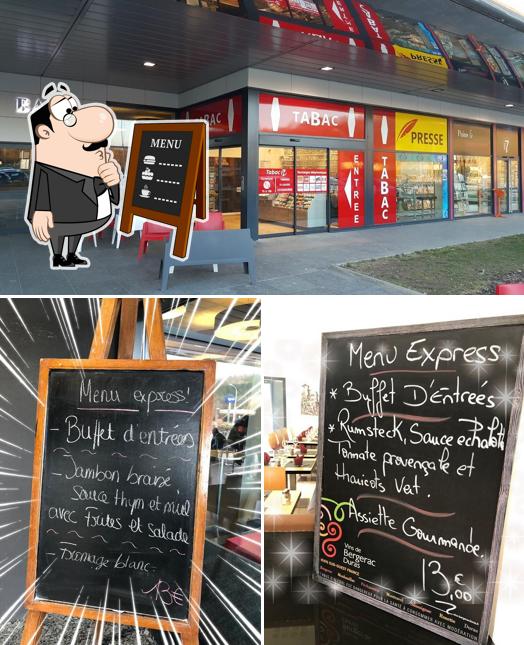 TABAC
PRESSE
TABAC
ENTREE
TABAC
PRESSE
Tabac
MENU
Menu express!
- Buffet d'entrées
- Jambon braisé
sauce thym et miel
avec Frites et salade
- Fromage blanc.
13€
Menu Express
* Buffet D'Entrées
* Rumsteck, Sauce echalote
Tomate provençale et
Haricots Vert.
Assiette Gourmande.
13,00€
Vins de
Bergerac
Duras